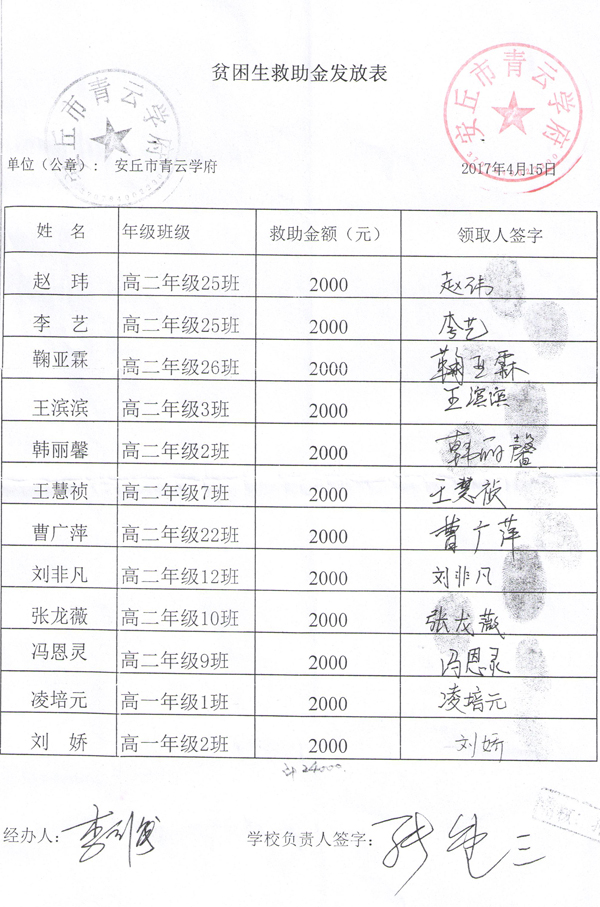 贫困生救助金发放表
安丘市青云学府
安丘市青云学府
单位（公章）： 安丘市青云学府 2017年4月15日
姓 名 年级班级 救助金额（元） 领取人签字
赵 玮 高二年级25班 2000 赵玮
李 艺 高二年级25班 2000 李艺
鞠亚霖 高二年级26班 2000 鞠亚霖
王滨滨 高二年级3班 2000 王滨滨
韩丽馨 高二年级2班 2000 韩丽馨
王慧祯 高二年级7班 2000 王慧
曹广萍 高二年级22班 2000 曹广萍
刘非凡 高二年级12班 2000 刘非凡
张龙薇 高二年级10班 2000 张龙薇
冯恩灵 高二年级9班 2000 冯恩灵
凌培元 高一年级1班 2000 凌培元
刘 娇 高一年级2班 2000 刘娇
计24000.
经办人： 学校负责人签字：